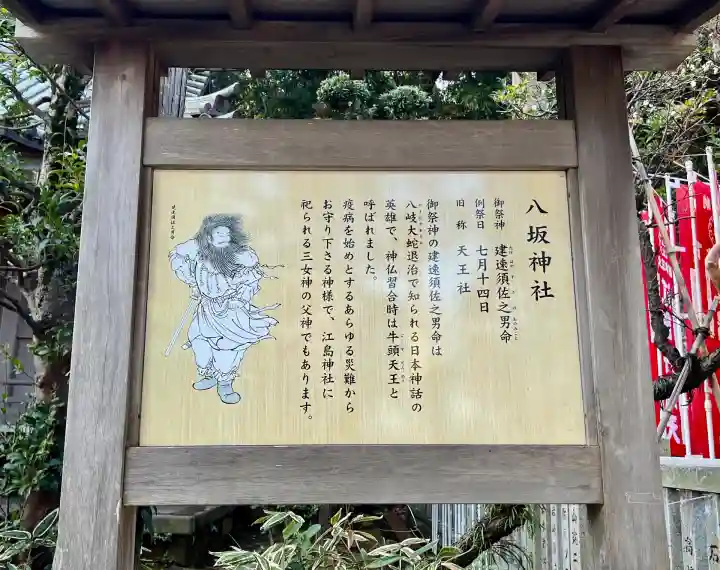 八坂神社
御祭神 建速須佐之男命
例祭日 七月十四日
旧称 天王社
御祭神の建速須佐之男命は
八岐大蛇退治で知られる日本神話の
英雄で、神仏習合時は牛頭天王と
呼ばれました。
疫病を始めとするあらゆる災難から
お守り下さる神様で、江島神社に
祀られる三女神の父神でもあります。